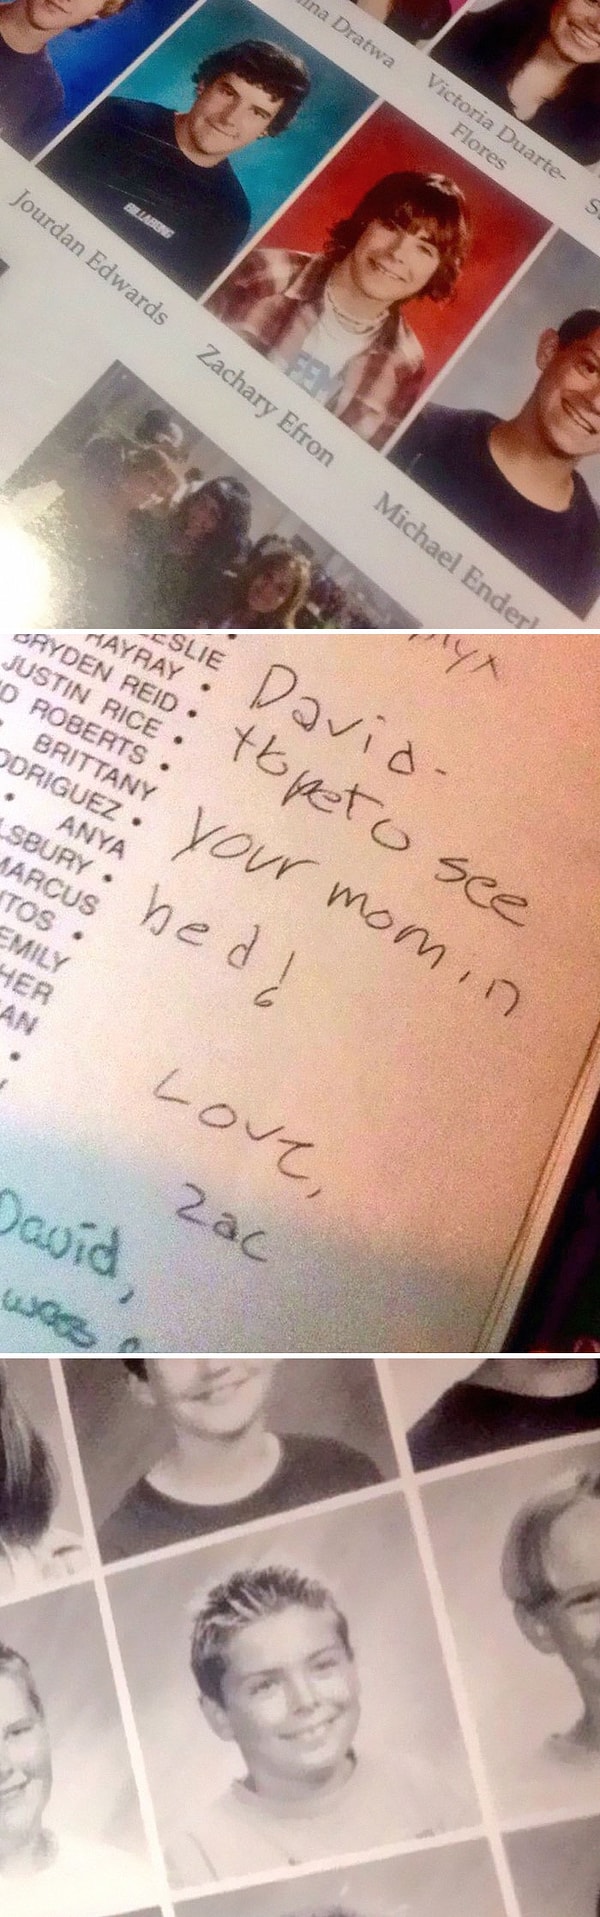 nna Dratwa
Victoria Duarte-
Flores
BILLABONG
Jourdan Edwards
Zachary Efron
Michael Enderl
ESLIE
HAYRAY •
BRYDEN REID •
JUSTIN RICE •
D ROBERTS •
BRITTANY
ODRIGUEZ •
ANYA
LSBURY •
MARCUS
TOS •
EMILY
HER
AN
David-
Hope to see
your mom in
bed!
Love,
Zac
David,